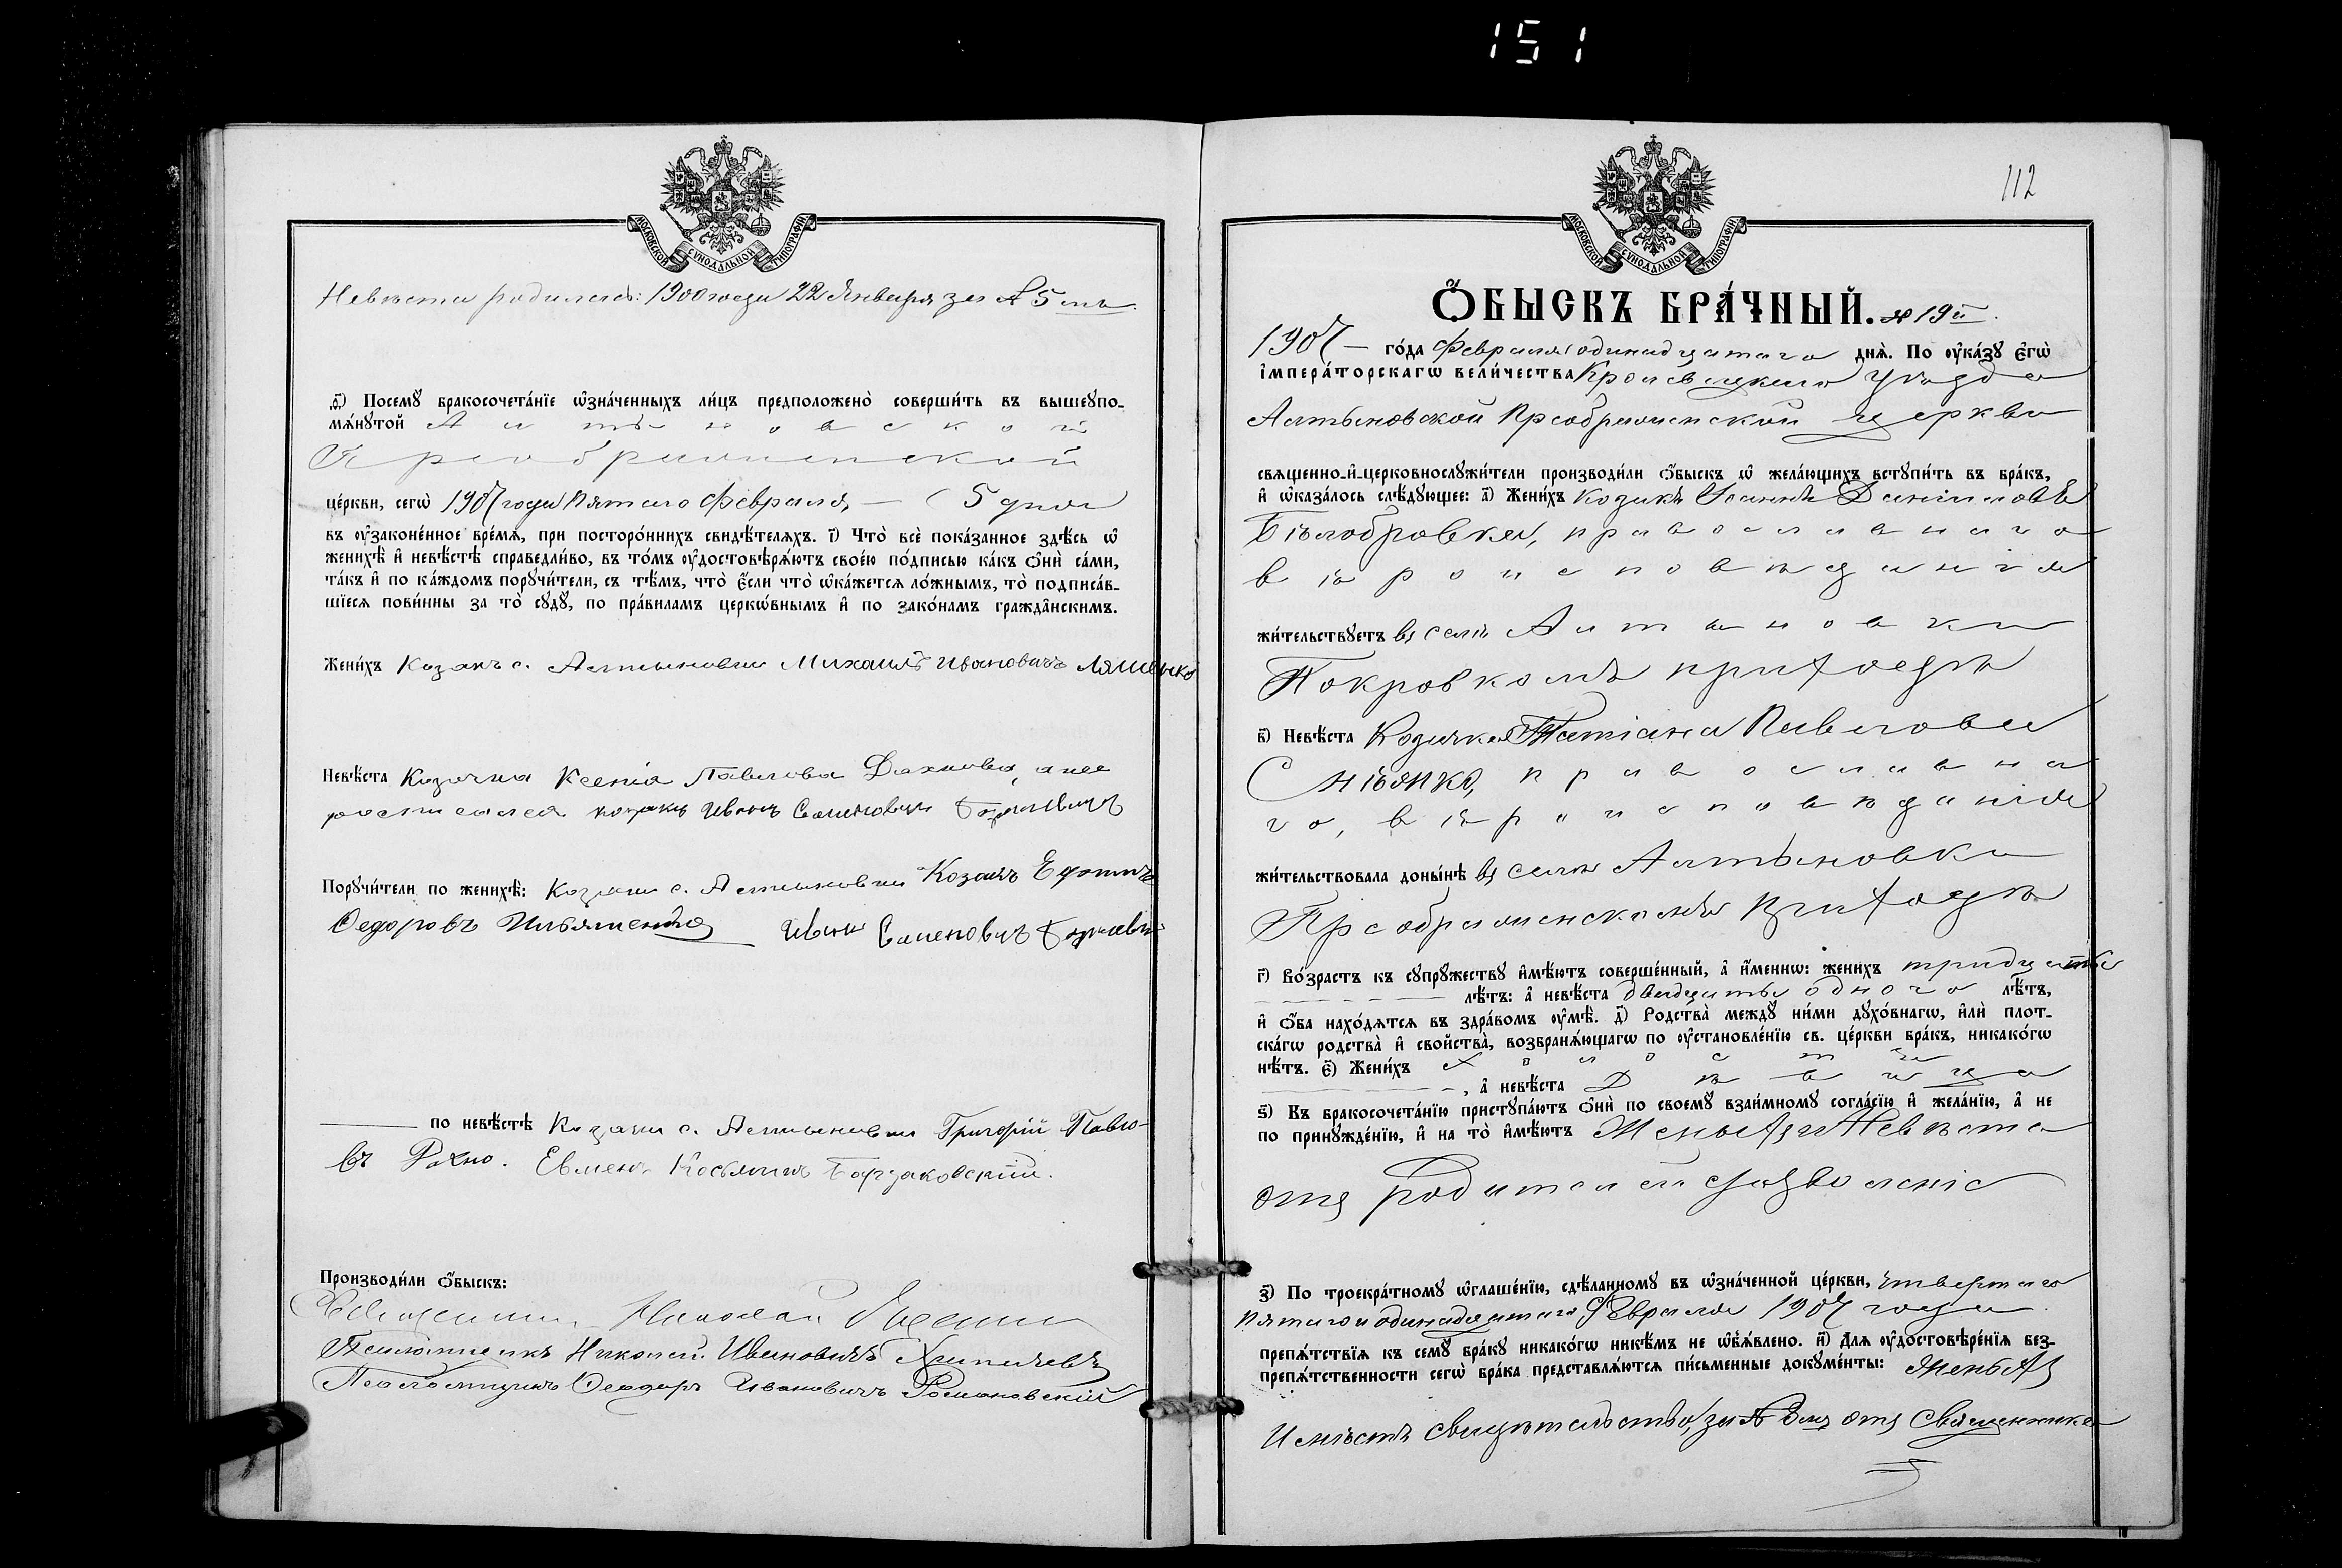 151
МОСКОВСКОЙ СУНОДАЛЬНОЙ ТИПОГРАФІИ
Невѣста родилась: 1900 года 22 Января за № 5 мъ.
ѳ҃) Посемꙋ̀ бракосочета́нїе ѡ҆зна́ченныхъ ли́цъ предположено̀ соверши́ть въ вышеꙋпо-
мѧ́нꙋтой Алтыновской
Преображенской
це́ркви, сегѡ̀ 1907 года Пятаго Февраля, — 5 дня
въ ᲂу҆законе́нное вре́мѧ, при посторо́ннихъ свидѣ́телѧхъ. і҃) Что̀ всѐ пока́занное здѣ́сь ѡ҆
женихѣ̀ и҆ невѣ́стѣ справедли́во, въ то́мъ ᲂу҆достовѣрѧ́ютъ свое́ю по́дписью ка́къ ѻ҆нѝ са́ми,
та́къ и҆ по ка́ждомъ порꙋчи́тели, съ тѣ́мъ, что̀ є҆́сли что̀ ѡ҆ка́жется ло́жнымъ, то̀ подписа́в-
шїеся пови́нны за то̀ сꙋдꙋ̀, по пра́виламъ церкѡ́внымъ и҆ по зако́намъ гражда́нскимъ.
Жени́хъ Козакъ с. Алтыновки Михаилъ Ивановичъ Ляшенко
Невѣ́ста Козачка Ксенія Павлова Дахнова, а нее
росписался козакъ Иванъ Семеновичъ
Порꙋчи́тели по женихѣ̀: Козаки с. Алтыновки Козакъ
Ѳедоровъ Ильяшенко Иванъ Семеновичъ
по невѣ́стѣ Козаки с. Алтыновки Григорій Павло-
въ Рахно. Евменъ Косьмичъ Борзаковскій.
Производи́ли ѻ҆́быскъ:
Священникъ Николай
Псаломщикъ Николай Ивановичъ
Псаломщикъ Ѳеодоръ Ивановичъ Романовскій
112
МОСКОВСКОЙ СУНОДАЛЬНОЙ ТИПОГРАФІИ
Ѻ҆́БЫСКЪ БРА́ЧНЫЙ. № 19й.
1907 — го́да Февраля одинадцатаго днѧ̀. По ᲂу҆ка́зꙋ є҆гѡ̀
і҆мпера́торскагѡ вели́чества Кролевецкаго уѣзда
Алтыновской Преображенской церкви
свѧщенно-и҆-церковнослꙋжи́тели производи́ли ѻ҆́быскъ ѡ҆ жела́ющихъ встꙋпи́ть въ бра́къ,
и҆ ѡ҆каза́лось слѣ́дꙋющее: а҃) Жени́хъ козакъ Іоаннъ Даніиловъ
Бѣлобровка, православнаго
вѣроисповѣданія
жи́тельствꙋетъ въ селѣ Алтыновки
Покровкомъ приходѣ
в҃) Невѣ́ста Козачка Татіана Павлова
Снѣжко, православна
го, вѣроисповѣданія
жи́тельствовала доны́нѣ въ селѣ Алтыновки
Преображенскомъ приходѣ
г҃) Во́зрастъ къ сꙋпрꙋ́жествꙋ и҆мѣ́ютъ соверше́нный, а҆ и҆́менно: жени́хъ тридцать
лѣ́тъ: а҆ невѣ́ста двадцать одного лѣ́тъ,
и҆ ѻ҆́ба нахо́дятся въ здра́вомъ ᲂу҆мѣ̀. д҃) Родства̀ междꙋ̀ ни́ми дꙋхо́внагѡ, и҆лѝ плот-
ска́гѡ родства̀ и҆ свойства̀, возбранѧ́ющагѡ по ᲂу҆становле́нїю св. це́ркви бра́къ, никако́гѡ
нѣ́тъ. є҃) Жени́хъ холостъ
, а҆ невѣ́ста Дѣвица
ѕ҃) Къ бракосочета́нїю пристꙋпа́ютъ ѻ҆нѝ по своемꙋ̀ взаи́мномꙋ согла́сїю и҆ жела́нїю, а҆ не
по принꙋжде́нїю, и҆ на то̀ и҆мѣ́ютъ Женыхъ и Невѣста
отъ родителей дозволеніе
з҃) По троекра́тномꙋ ѡ҆глаше́нїю, сдѣ́ланномꙋ въ ѡ҆зна́ченной це́ркви, четвертаго
пятаго и одинадцатаго Февраля 1907 года.
препѧ́тствїѧ къ семꙋ̀ бра́кꙋ никако́гѡ никѣ́мъ не ѡ҆б̾ѧ́влено. и҃) Длѧ ᲂу҆достовѣре́нїѧ без-
препѧ́тственности сегѡ̀ бра́ка представлѧ́ются пи́сьменные докꙋме́нты: женыхъ
свидѣтельство, за № отъ Священника